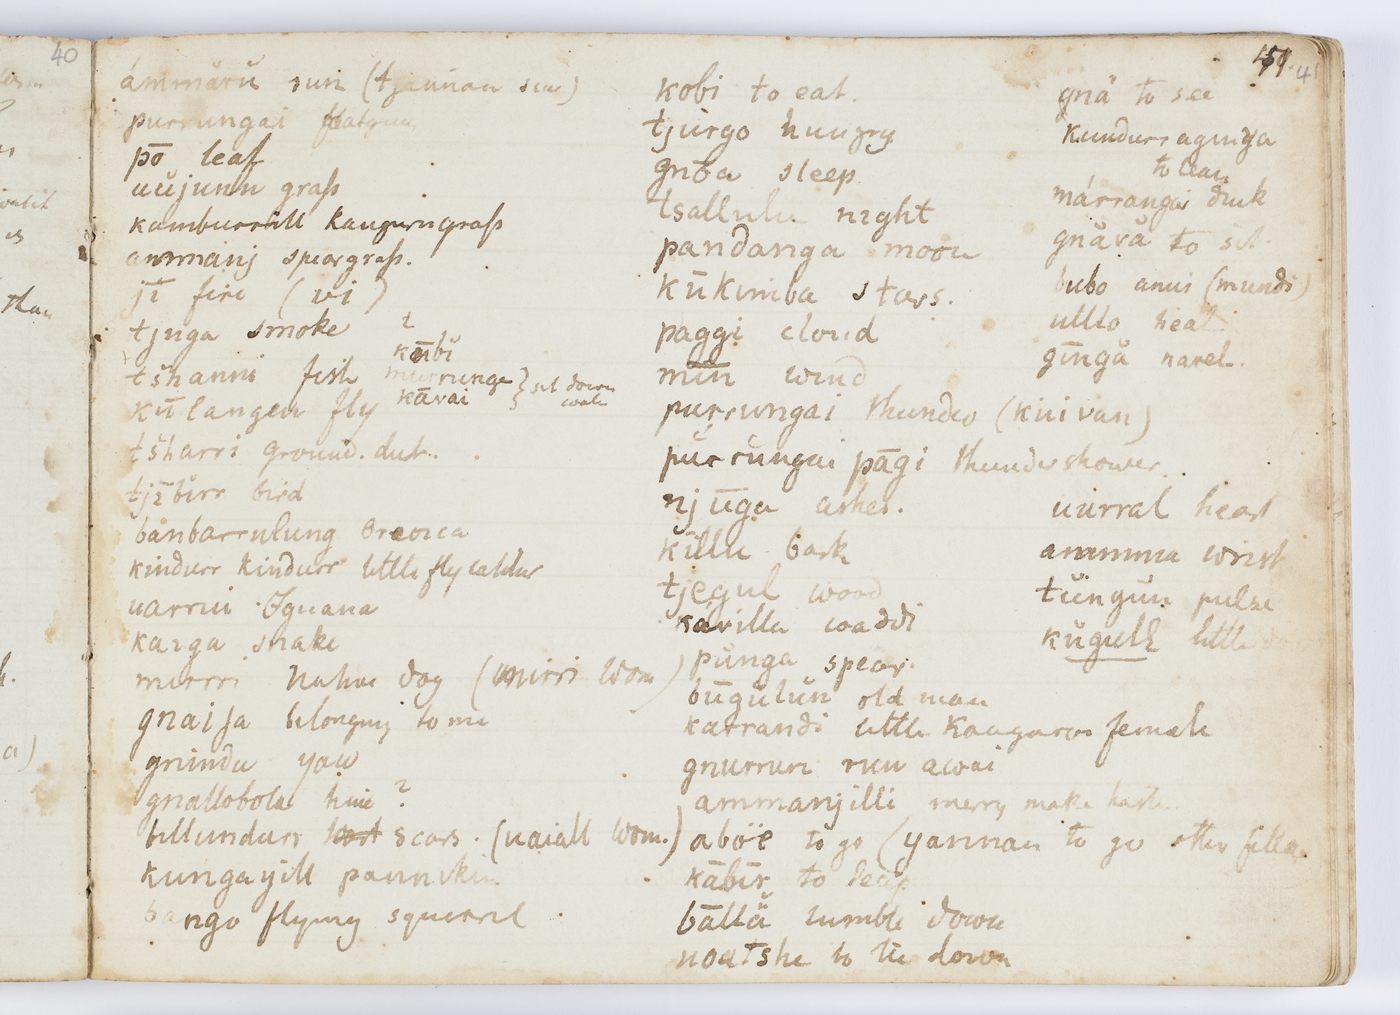 40
ámmărŭ sun (tjaunau sun)
purrungai
pō leaf
uŭjunn graſs
kamburrill kangurugraſs
ammanj speargraſs.
jī fire (vi)
tjuga smoke
?
kŭbĭ
tšhanni fish murrunga } sit down
kāvai
kūlangen fly
tšharri ground. dirt.
tjībŭrr bird
bånbarrulung Oreoica
kindurr kindurr little flycatcher
uarrui Iguana
karga snake
mirrri Native dog (mirri Wom)
gnaija belonging to me
grinda you
gnallobola him ?
billundurr scars. (uaiall Wom.)
kungayill
bango flying squirril
kobi to eat.
tjurgo hungry
gnōa sleep
tsallulu night
pandanga moon
kūkimba stars.
paggi cloud
mīn wind
purrungai thunder (kuivan)
pŭrrŭngai pāgi thundershower.
njūga ashes.
killa bark
tjegul wood
kávilla waddi
pŭnga spear.
būgŭlŭn old man
karrandi little Kangaroo female
gnurrun run awai
ammanjilli merry make haste
aböe to go (yannau to go other fella
kābīr to leap
băllă tumble down
noatshe to lie down
159. 41
gnă to see
kundurraginga
to lean
márrangai duck
gnăvă to sit.
bubo anus (mundi)
ullo heal
gīngă navel.
uurral heart
ammma wrist
tŭngŭn pulse
kŭgulk little